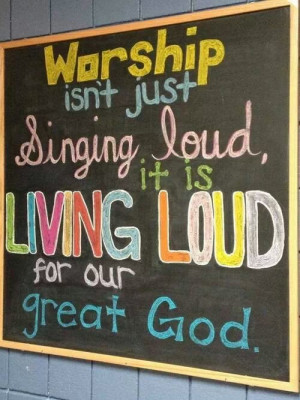 Worship
isn't just
Singing loud,
it is
LIVING LOUD
for our
great God.